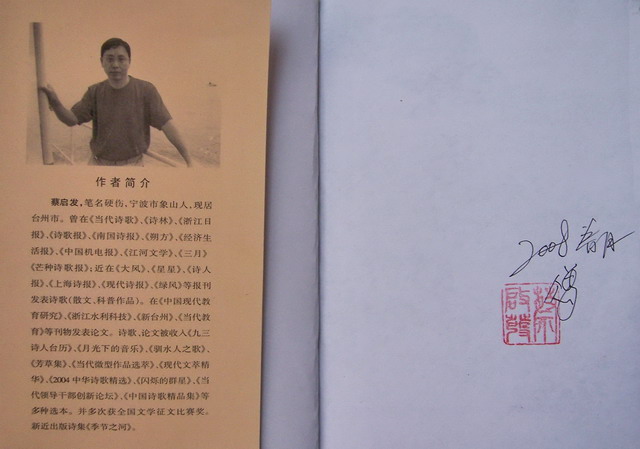 作者简介
蔡启发,笔名硬伤,宁波市象山人,现居
台州市。曾在《当代诗歌》、《诗林》、《浙江日
报》、《诗歌报》、《南国诗报》、《朔方》、《经济生
活报》、《中国机电报》、《江河文学》、《三月》、
《芒种诗歌报》;近在《大风》、《星星》、《诗人
报》、《上海诗报》、《现代诗报》、《绿风》等报刊
发表诗歌(散文、科普作品)。在《中国现代教
育研究》、《浙江水利科技》、《新台州》、《当代教
育》等刊物发表论文。诗歌、论文被收入《九三
诗人台历》、《月光下的音乐》、《驯水人之歌》、
《芳草集》、《当代微型作品选萃》、《现代文萃精
华》、《2004中华诗歌精选》、《闪烁的群星》、《当
代领导干部创新论坛》、《中国诗歌精品集》等
多种选本。并多次获全国文学征文比赛奖。
新近出版诗集《季节之河》。
2008 春月
蔡啟發